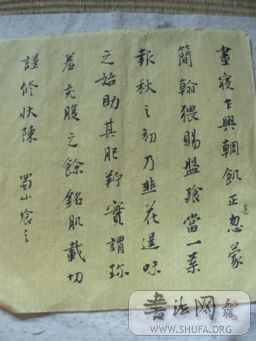 晝寢乍興輖飢正甚忽蒙
簡翰猥賜盤飧當一葉
報秋之初乃韭花逞味
之始助其肥羜實謂珍
羞充腹之餘銘肌載切
謹修狀陳 蜀小飧之
書法网
WWW.SHUFA.ORG